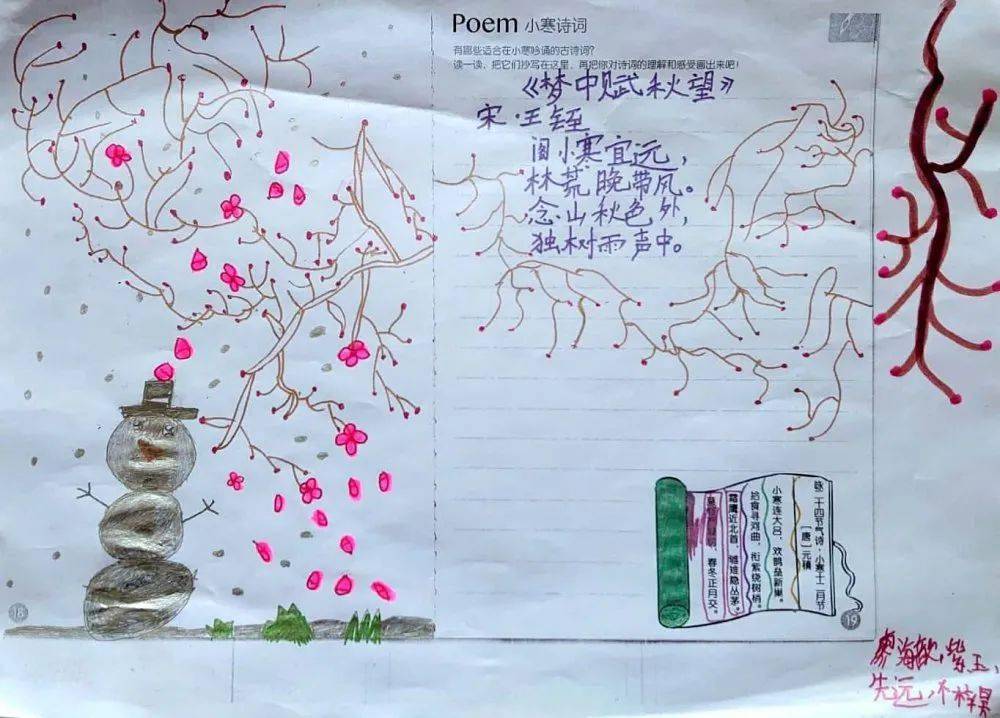 Poem 小寒诗词
有哪些适合在小寒吟诵的古诗词？
读一读，把它们抄写在这里，再把你对诗词的理解和感受画出来吧！
《梦中赋秋望》
宋·王铚
阁小寒宜远，
林荒晚带风。
念山秋色外，
独树雨声中。
咏二十四节气诗·小寒十二月节
〔唐〕元稹
小寒连大吕，欢鹊垒新巢。
拾食寻河曲，衔紫绕树梢。
霜鹰近北首，雊雉隐丛茅。
春冬正月交。
18
19